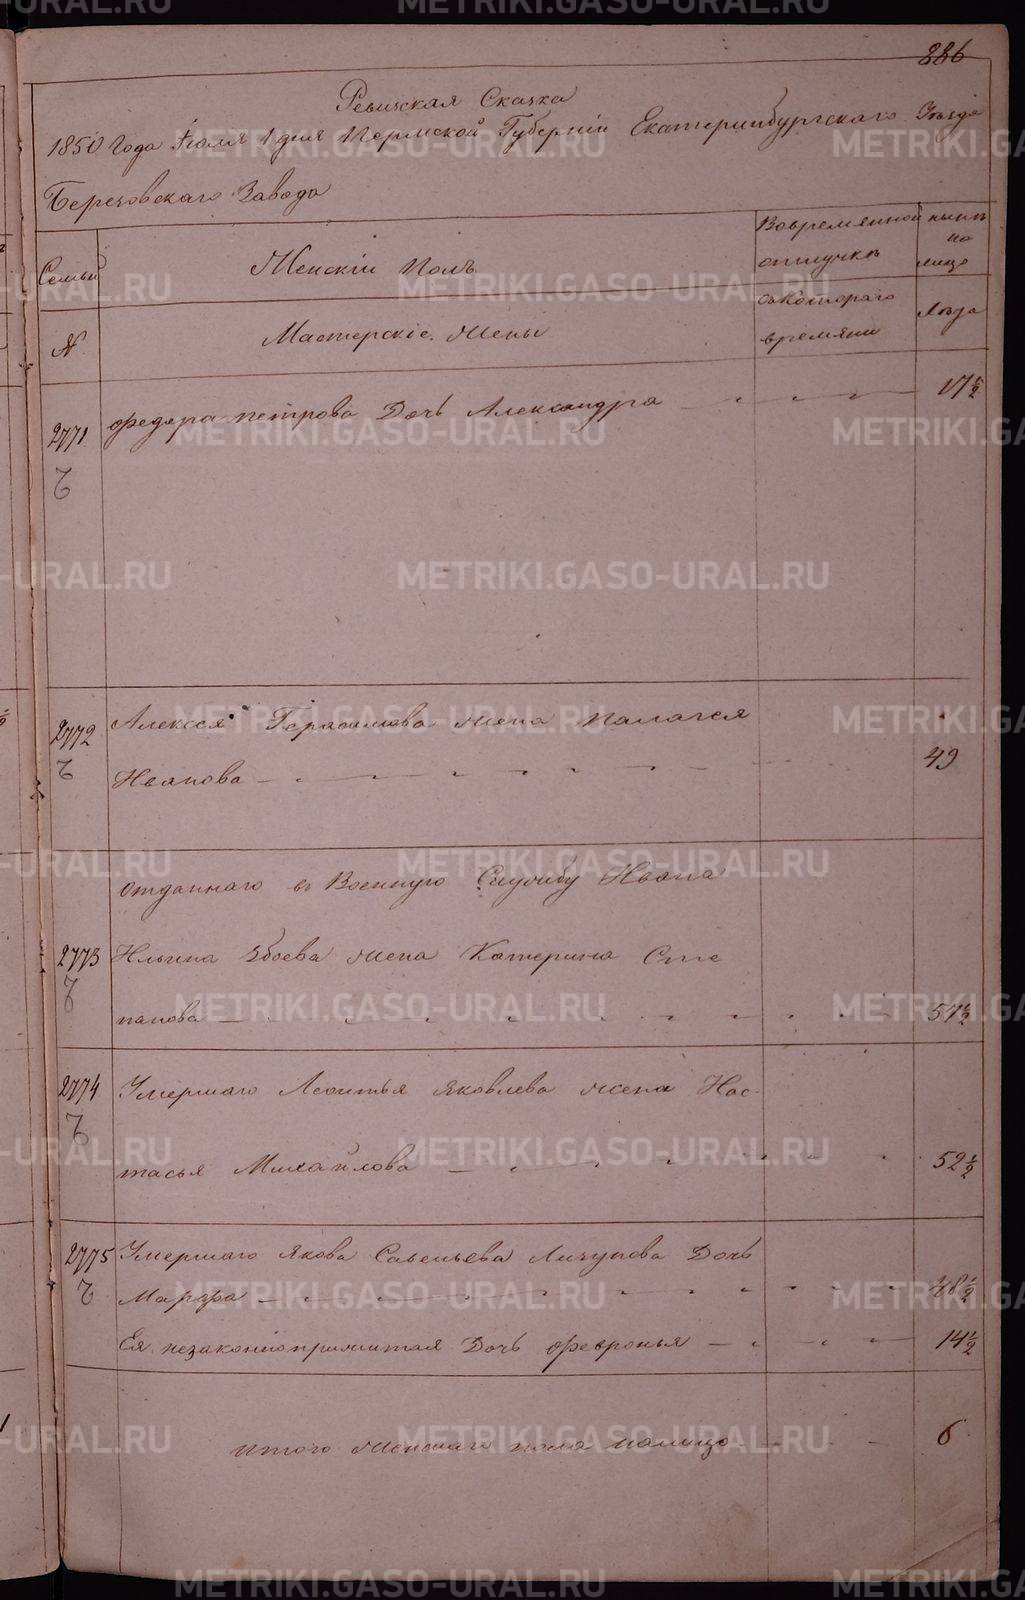 886
Ревизская Сказка
1850 Года Iюля 1 дня Пермской Губернiи Екатеринбургскаго Уѣзда
Березовскаго Завода
Семьи
Женскiй Полъ
Во временной
отлучкѣ
нынѣ
на
лицо
№
Мастерскiе жены
съ котораго
времяни
Лѣта
2771
федора петрова Дочь Александра
17 ½
2772
Алексея Герасимова жена Палагея
Иванова
49
отданнаго въ Военную Службу Ивана
2773
Ильина Збоева жена Катерина Сте
панова
57 ½
2774
Умершаго Леонтья Яковлева жена Нас-
тасья Михайлова
52 ½
2775
Умершаго Якова Савельева Дочь
Марфа
48 ½
Ея незаконноприжитая Дочь февронья
14 ½
итого женскаго пола налицо
6
METRIKI.GASO-URAL.RU